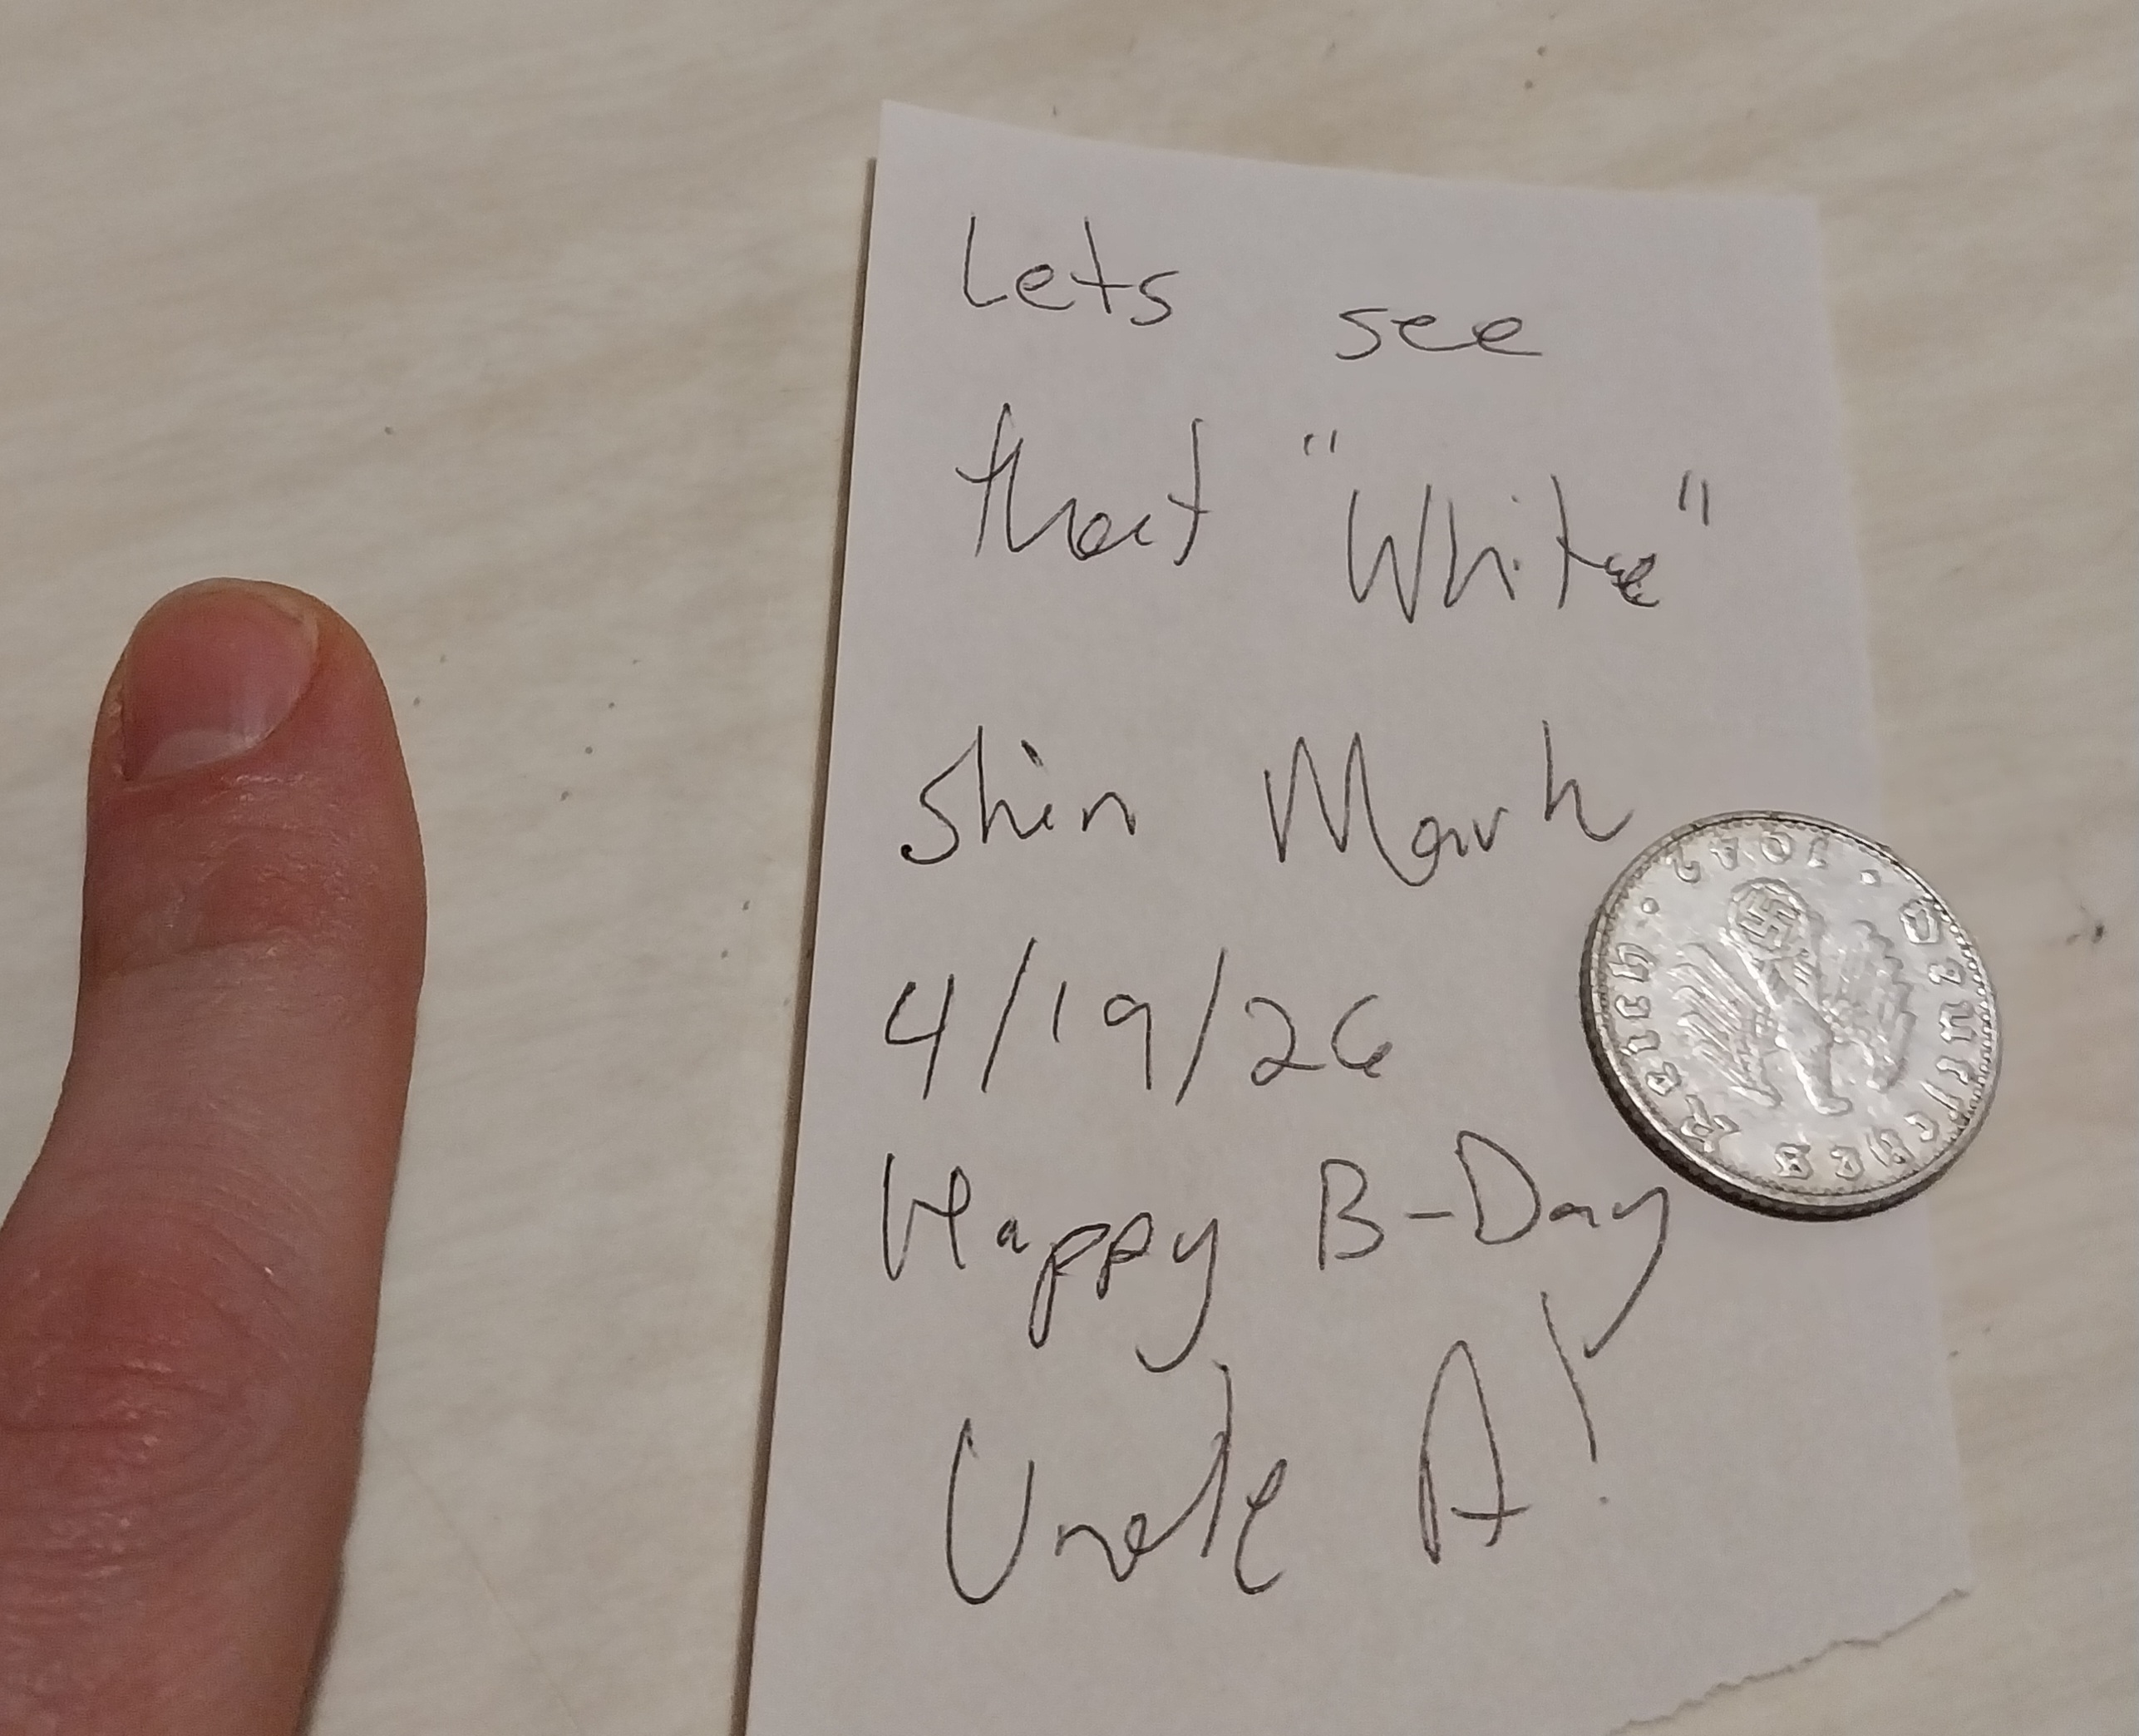 Lets see
that "White"
Shin Mark
4/19/26
Happy B-Day
Uncle A!
Deutsches Reich • 1942 •